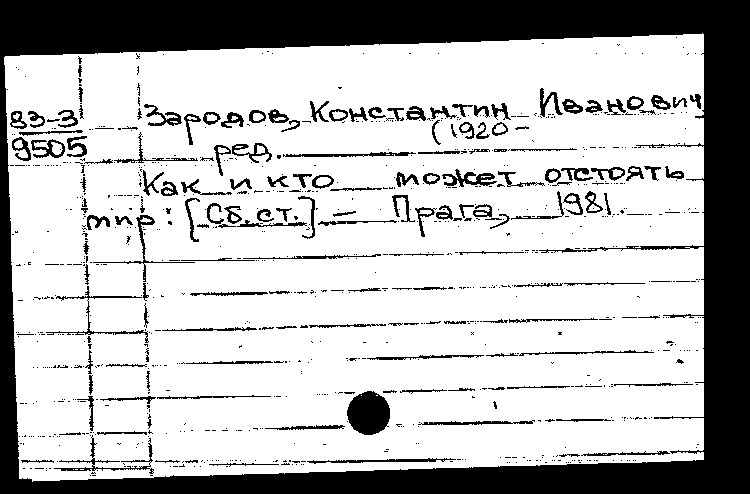 83-3 Зародов, Константин Иванович,
9505 ред. (1920-
Как и кто может отстоять
мир: [Сб. ст.] — Прага, 1981.